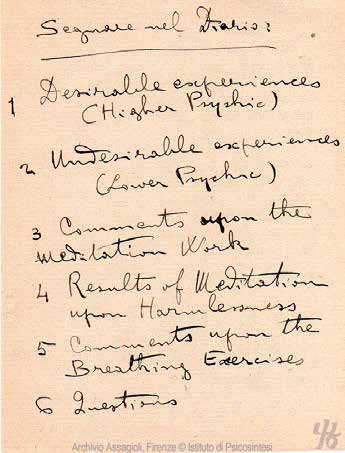 Segnare nel Diario:
1 Desirable experiences
(Higher Psychic)
2 Undesirable experiences
(Lower Psychic)
3 Comments upon the
Meditation Work
4 Results of Meditation
upon Harmlessness
5 Comments upon the
Breathing Exercises
6 Questions
46
Archivio Assagioli, Firenze © Istituto di Psicosintesi